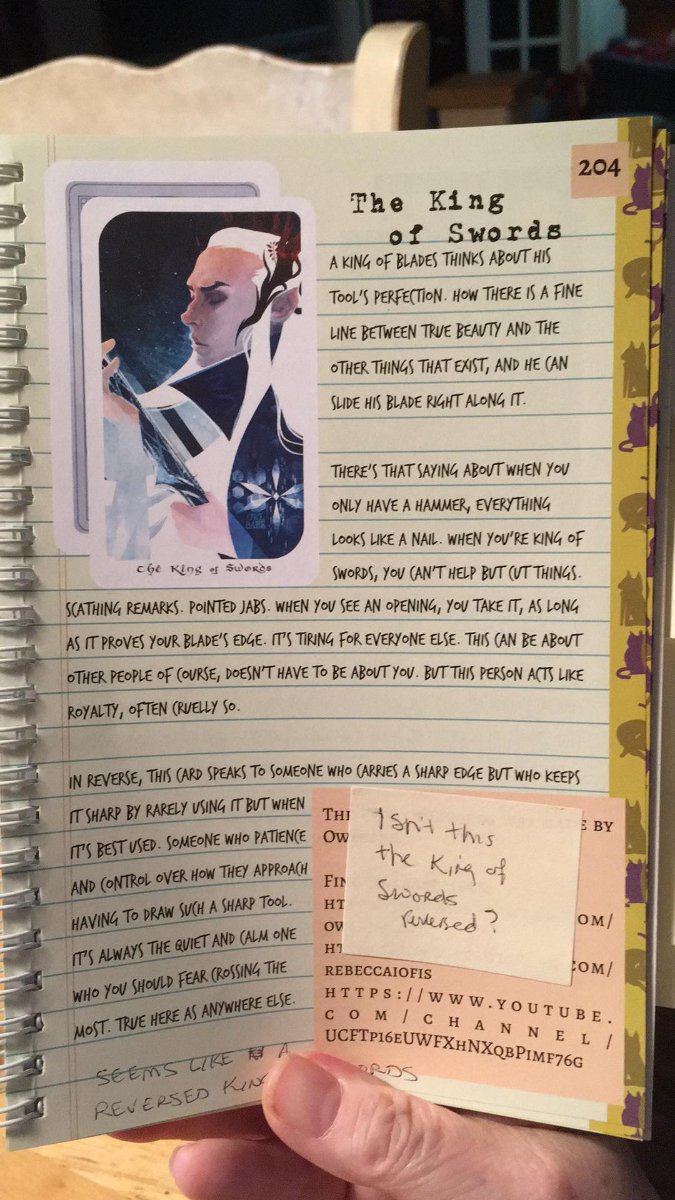 204
The King
of Swords
A KING OF BLADES THINKS ABOUT HIS
TOOL'S PERFECTION. HOW THERE IS A FINE
LINE BETWEEN TRUE BEAUTY AND THE
OTHER THINGS THAT EXIST, AND HE CAN
SLIDE HIS BLADE RIGHT ALONG IT.
THERE'S THAT SAYING ABOUT WHEN YOU
ONLY HAVE A HAMMER, EVERYTHING
LOOKS LIKE A NAIL. WHEN YOU'RE KING OF
SWORDS, YOU CAN'T HELP BUT CUT THINGS.
The King of Swords
SCATHING REMARKS. POINTED JABS. WHEN YOU SEE AN OPENING, YOU TAKE IT, AS LONG
AS IT PROVES YOUR BLADE'S EDGE. IT'S TIRING FOR EVERYONE ELSE. THIS CAN BE ABOUT
OTHER PEOPLE OF COURSE, DOESN'T HAVE TO BE ABOUT YOU. BUT THIS PERSON ACTS LIKE
ROYALTY, OFTEN CRUELLY SO.
IN REVERSE, THIS CARD SPEAKS TO SOMEONE WHO CARRIES A SHARP EDGE BUT WHO KEEPS
IT SHARP BY RARELY USING IT BUT WHEN
IT'S BEST USED. SOMEONE WHO PATIENCE
AND CONTROL OVER HOW THEY APPROACH
HAVING TO DRAW SUCH A SHARP TOOL.
IT'S ALWAYS THE QUIET AND CALM ONE
WHO YOU SHOULD FEAR CROSSING THE
MOST. TRUE HERE AS ANYWHERE ELSE.
BY
COM/
COM/
REBECCAIOFIS
HTTPS://WWW.YOUTUBE.
COM/CHANNEL/
UCFTP16EUWFXHNXQBPIMF76G
Isn't this
the King of
Swords
reversed?
SEEMS LIKE A
REVERSED